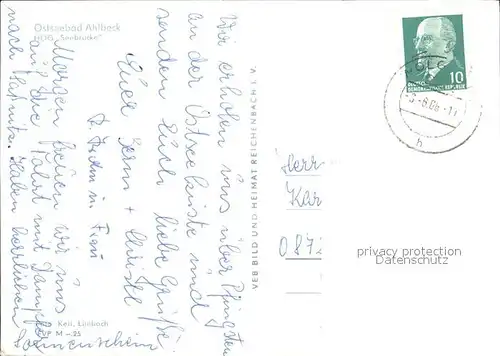 Ostseebad Ahlbeck
HOG „Seebrücke"
Wir erholen uns über Pfingsten
an der Ostseeküste und
senden Euch liebe Grüße.
Euer +
Morgen freuen wir uns
auf die Fahrt mit Dampfer
nach Saßnitz. Haben herrlichen
Sonnenschein
VEB BILD UND HEIMAT REICHENBACH I. V.
Keil, Limbach
M-25
10
DEUTSCHE
DEMOKRATISCHE REPUBLIK
h
Herr
Kar
087
privacy protection
Datenschutz